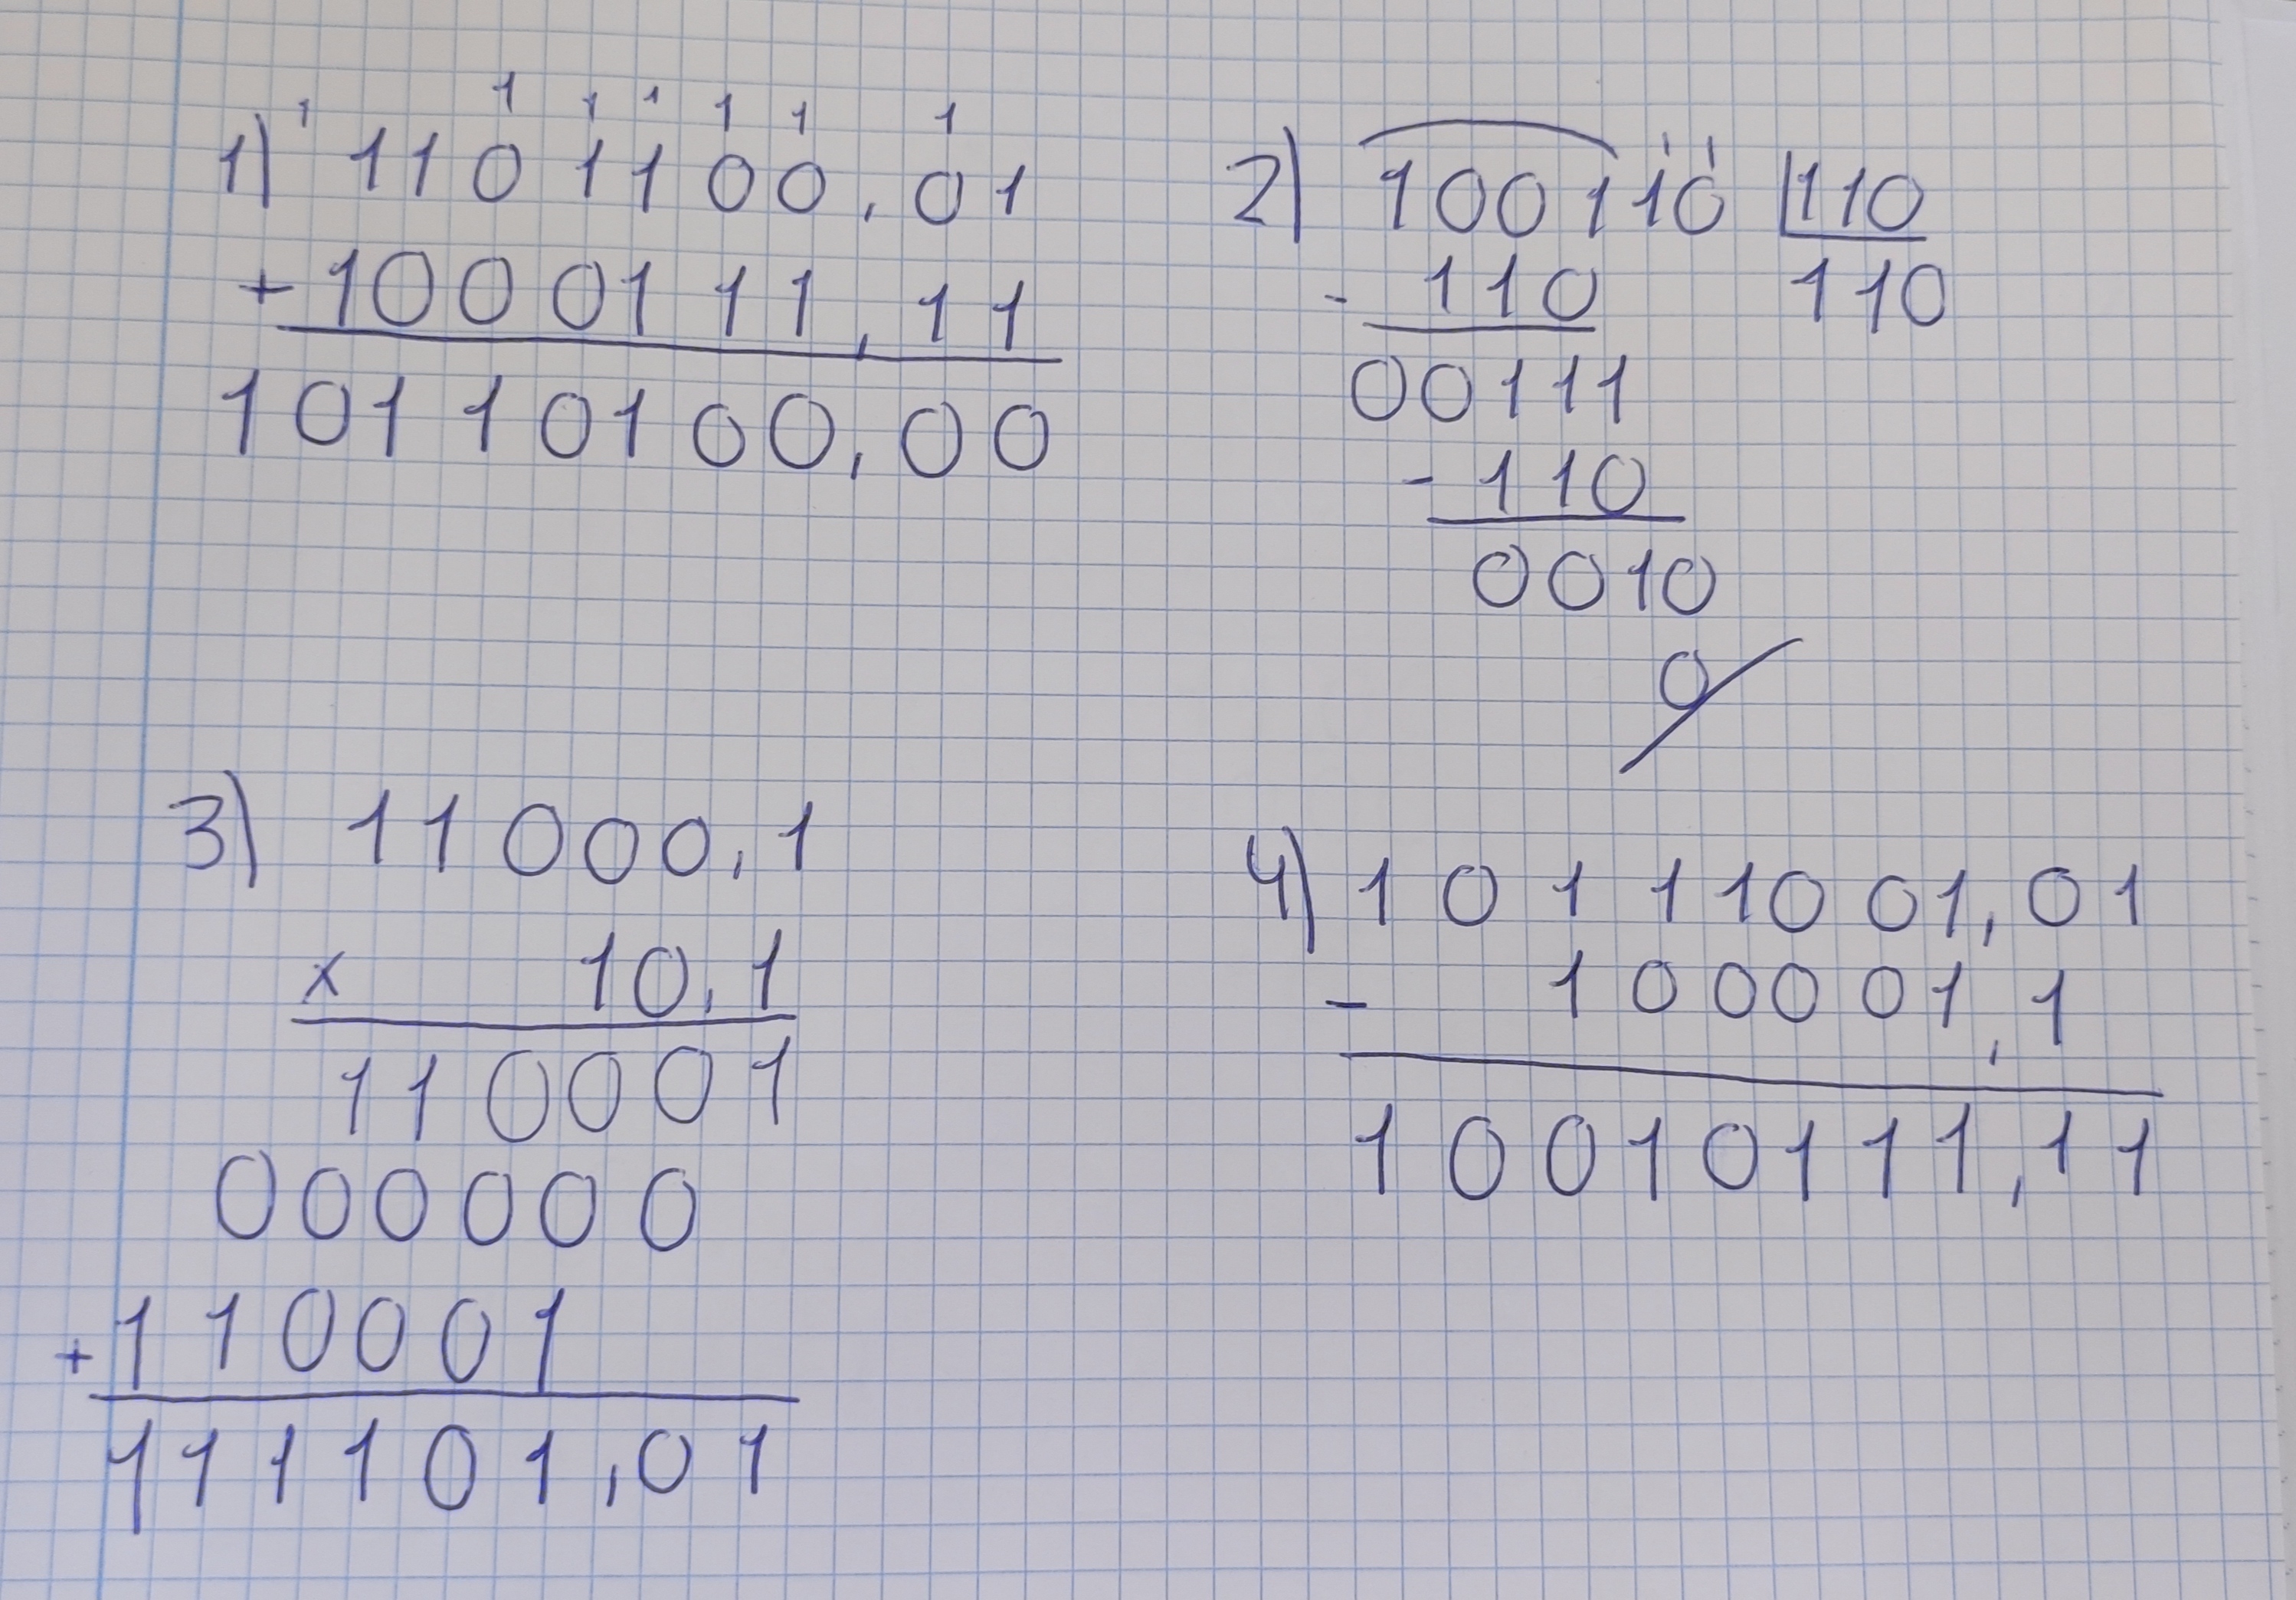 1 1 1 1 1 1 1
1) 1101100,01
+ 1000111,11
10110100,00
2) 100110 110
- 110 110
00111
- 110
0010
0
3) 11000,1
x 10,1
110001
000000
+ 110001
111101,01
4) 10111001,01
- 100001,1
10010111,11